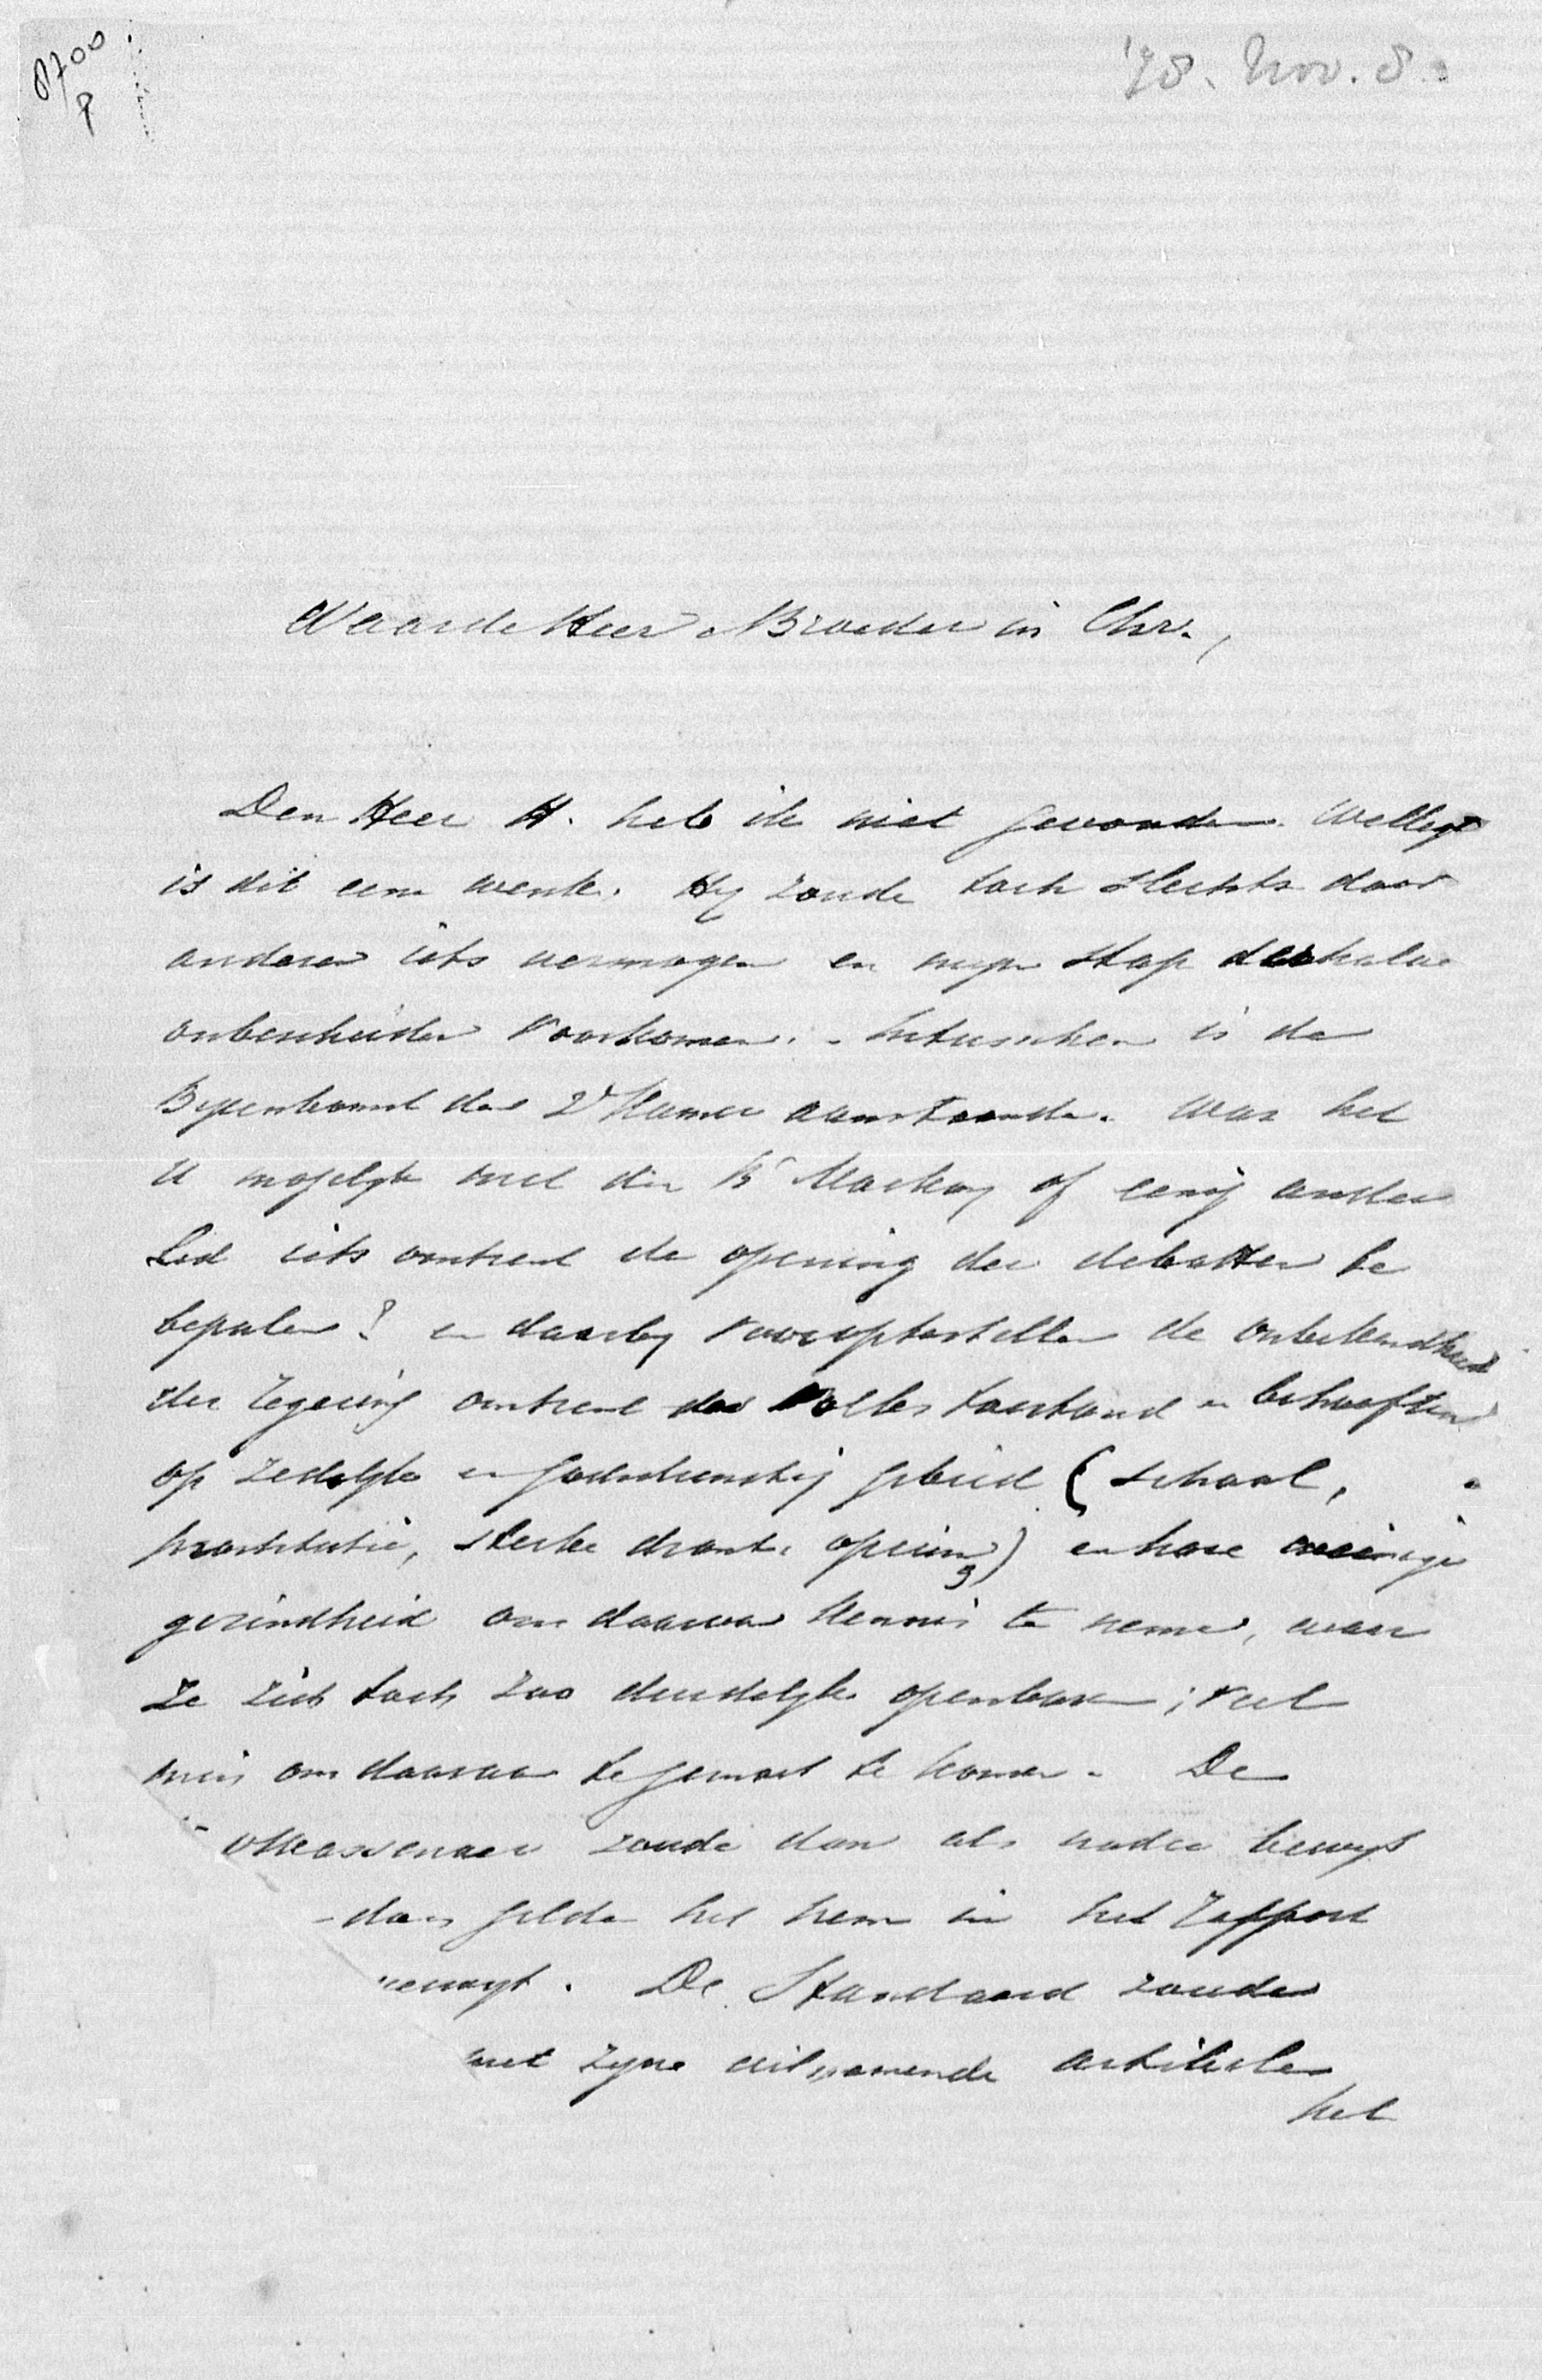 8700
P
'78. Nov. 8.
Waarde Heer & Broeder in Chr.,
Den Heer H. heb ik niet gevonden. Welligt
is dit een wenk. Hy zoude toch slechts door
anderen iets vermogen en myn stap derhalve
onbescheiden voorkomen. - Intusschen is de
Byeenkomst der 2e Kamer aanstaande. Was het
U mogelyk met den Br Mackay of eenig ander
Lid iets omtrent de opening der debatten te
bepalen? en daarby vooroptestellen de onbekendheid
der regering omtrent des volks toestand en behoeften
op zedelyk en godsdienstig gebied (school,
prostitutie, sterke drank, opium) en hare weinige
gezindheid om daarvan kennis te nemen, waar
ze zich toch zoo duidelyk openbaren; veel
min om daaraan te gemoet te komen. De
Wassenaer zoude dan als nader bewys
gelden het hem in het Rapport
De Standaard zoude
met zyne uitnemende artikelen
het